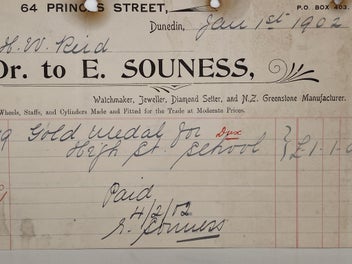 64 PRINCES STREET,
P.O. BOX 403.
Dunedin, Jan 1st 1902
H. W. Reid
Dr. to E. SOUNESS,
Watchmaker, Jeweller, Diamond Setter, and N.Z. Greenstone Manufacturer.
Wheels, Staffs, and Cylinders Made and Fitted for the Trade at Moderate Prices.
9 Gold medal for Dux
High St. School } £1-1-0
Paid
4/2/02
E. Souness